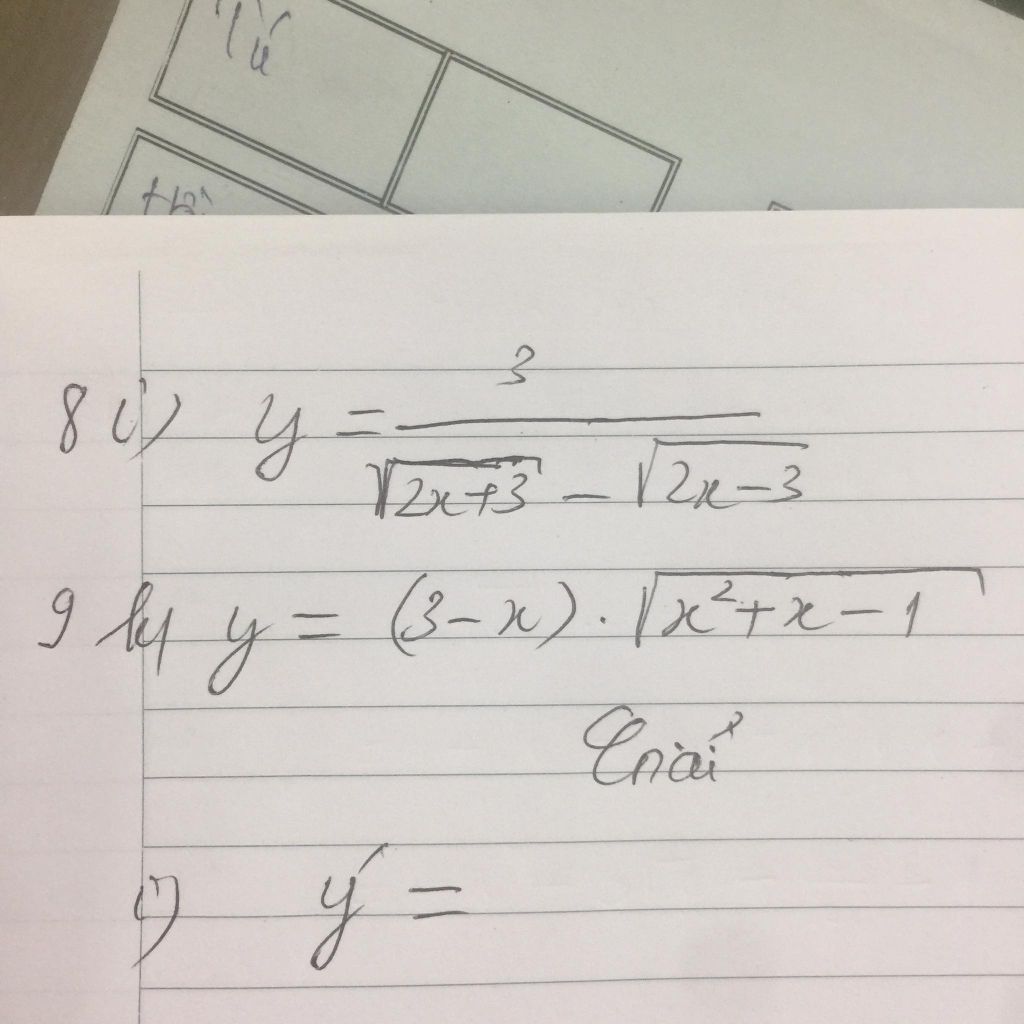 Tứ
8 i) y = 3 / (√(2x+3) − √(2x−3))
9 k) y = (3 − x) . √(x² + x − 1)
Giải
i) y' =